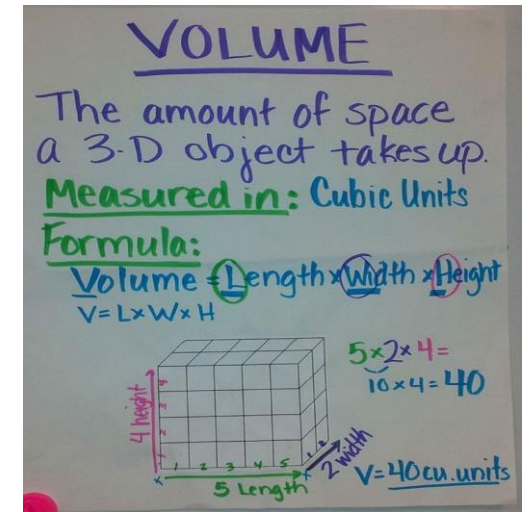 VOLUME
The amount of space
a 3-D object takes up.
Measured in: Cubic Units
Formula:
Volume = Length x Width x Height
V = L x W x H
5x2x4=
10 x 4 = 40
4 height
4
3
2
1
1 2 3 4 5
1 2
5 Length
2 width
V= 40 cu. units